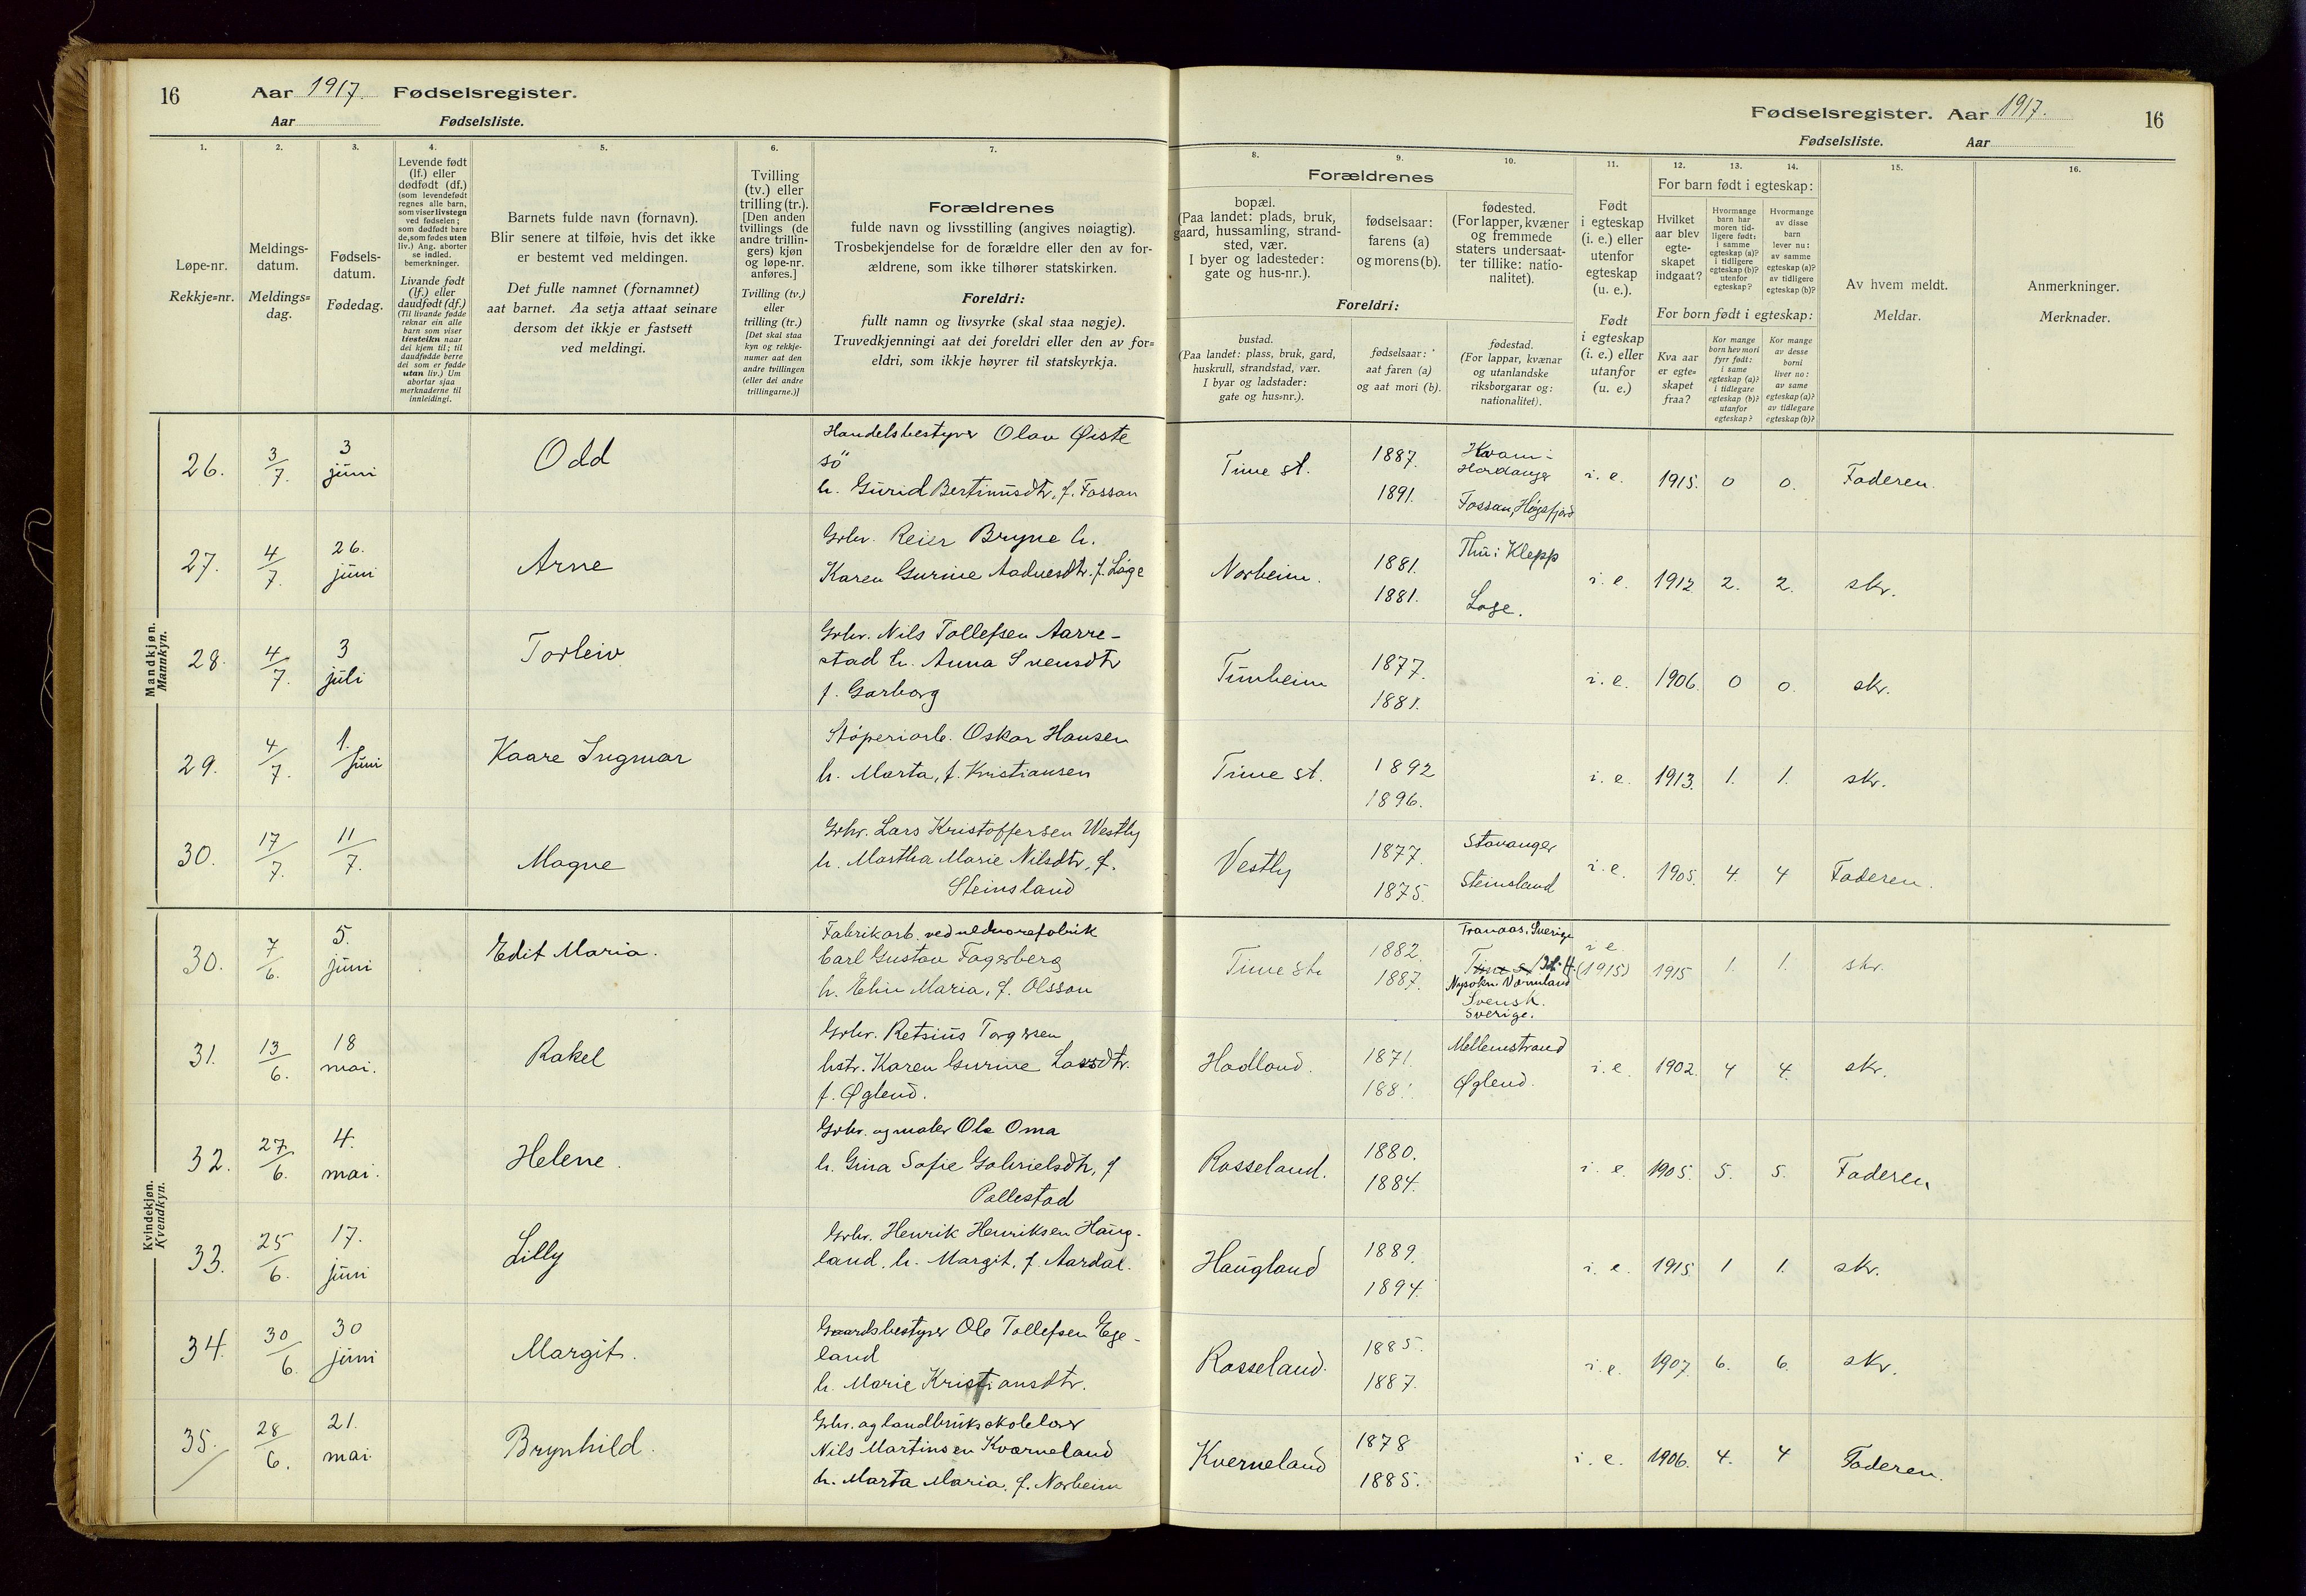 16 Aar 1917. Fødselsregister.
Aar Fødselsliste.
Fødselsregister. Aar 1917. 16
Fødselsliste. Aar
1. 2. 3. 4. 5. 6. 7. 8. 9. 10. 11. 12. 13. 14. 15. 16.
Løpe-nr.
Rekkje=nr.
Meldings-
datum.
Meldings=
dag.
Fødsels-
datum.
Fødedag.
Levende født
(lf.) eller
dødfødt (df.)
(som levendefødt
regnes alle barn,
som viser livstegn
ved fødselen;
som dødfødt bare
de, som fødes uten
liv.) Ang. aborter
se indled.
bemerkninger.
Livande født
(lf.) eller
daudfødt (df.)
(Til livande fødde
reknar ein alle
barn som viser
livsteikn naar
dei kjem til; til
daudfødde berre
dei som er fødde
utan liv.) Um
abortar sjaa
merknaderne til
innleidingi.
Barnets fulde navn (fornavn).
Blir senere at tilføie, hvis det ikke
er bestemt ved meldingen.
Det fulle namnet (fornamnet)
aat barnet. Aa setja attaat seinare
dersom det ikkje er fastsett
ved meldingi.
Tvilling
(tv.) eller
trilling (tr.).
[Den anden
tvillings (de
andre trillin-
gers) kjøn
og løpe-nr.
anføres.]
Tvilling (tv.)
eller
trilling (tr.)
[Det skal staa
kyn og rekkje-
numer aat den
andre tvillingen
(eller dei andre
trillingarne.)]
Forældrenes
fulde navn og livsstilling (angives nøiagtig).
Trosbekjendelse for de forældre eller den av for-
ældrene, som ikke tilhører statskirken.
Foreldri:
fullt namn og livsyrke (skal staa nøgje).
Truvedkjenningi aat dei foreldri eller den av for=
eldri, som ikkje høyrer til statskyrkja.
Forældrenes
bopæl.
(Paa landet: plads, bruk,
gaard, hussamling, strand-
sted, vær.
I byer og ladesteder:
gate og hus-nr.).
fødselsaar:
farens (a)
og morens (b).
fødested.
(For lapper, kvæner
og fremmede
staters undersaat-
ter tillike: natio-
nalitet).
Foreldri:
bustad.
(Paa landet: plass, bruk, gard,
huskrull, strandstad, vær.
I byar og ladstader:
gate og hus=nr.).
fødselsaar:
aat faren (a)
og aat mori (b).
fødestad.
(For lappar, kvænar
og utanlandske
riksborgarar og:
nationalitet).
Født
i egteskap
(i. e.) eller
utenfor
egteskap
(u. e.).
Født
i egteskap
(i. e.) eller
utanfor
(u. e.)
For barn født i egteskap:
Hvilket
aar blev
egte-
skapet
indgaat?
Hvormange
barn har
moren tid-
ligere født:
i samme
egteskap (a)?
i tidligere
egteskap (b)?
utenfor
egteskap?
Hvormange
av disse
barn
lever nu:
av samme
egteskap (a)?
av tidligere
egteskap (b)?
For born født i egteskap:
Kva aar
er egte=
skapet
fraa?
Kor mange
born hev mori
fyrr født:
i same
egteskap (a)?
i tidlegare
egteskap (b)?
utanfor
egteskap?
Kor mange
av desse
borni
liver no:
av same
egteskap (a)?
av tidlegare
egteskap (b)?
Av hvem meldt.
Meldar.
Anmerkninger.
Merknader.
Mandkjøn.
Mannkyn.
26. 3/7. 3 juni Odd
Handelsbestyrer Olav Øiste
sö
h. Gurid Bertinusdtr, f. Fossan
Time st. 1887. 1891. Kvam i Hardanger Fossan, Høgsfjord i. e. 1915. 0 0. Faderen.
27. 4/7. 26. juni Arne
Grbr. Reier Bryne h.
Karen Gurine Aadnesdtr. f. Lage
Norheim. 1881. 1881. Thu i Klepp Lage. i. e. 1912 2. 2. skr.
28. 4/7. 3 juli Torleiv
Grbr. Nils Tollefsen Aarre-
stad h. Anna Svensdtr
f. Garborg
Tunheim 1877. 1881. i. e. 1906. 0 0. skr.
29. 4/7. 1. Juni Kaare Ingmar
Støperiarb. Oskar Hansen
h. Marta, f. Kristiansen
Time st. 1892 1896. i. e. 1913. 1. 1. skr.
30. 17/7. 11/7. Magne
Grbr. Lars Kristoffersen Westly
h. Martha Marie Nilsdtr, f.
Steinsland
Vestly 1877. 1875. Stavanger Steinsland i. e. 1905. 4. 4 Faderen.
Kvindekjøn.
Kvendkyn.
30. 7/6. 5. juni Edit Maria.
Fabrikarb. ved uldvarefabrik
Carl Gustav Fagerberg
h. Elin Maria, f. Olsson
Time st. 1882. 1887. Tranaas, Sverige Nysokn. Värmland Svensk. Sverige. i e (1915) 1915 1. 1. skr.
31. 13/6. 18 mai. Rakel
Grbr. Retsius Torgersen
hstr. Karen Gurine Lassdtr.
f. Øglend.
Hadland. 1871. 188 Mellemstrand Øglend. i. e. 1902. 4 4. skr.
32. 27/6. 4. mai. Helene.
Grbr. og maler Ole Oma
h. Gina Sofie Gabrielsdtr, f
Pallestad
Rosseland. 1880. 1884. i. e. 1905. 5. 5. Faderen
33. 25/6. 17. juni Lilly
Grbr. Henrik Henriksen Haug-
land, h. Margit, f. Aardal.
Haugland 1889. 1894. i. e. 1915 1 1. skr.
34. 30/6. 30 juni Margit.
Gaardsbestyrer Ole Tollefsen Ege-
land
h. Marie Kristiansdtr.
Rosseland. 1885. 1887. i. e. 1907. 6. 6. skr.
35. 28/6. 21. mai Brynhild.
Grbr. og landbruksskolelærer
Nils Martinsen Kværneland
h. Marta Maria, f. Norheim
Kverneland 1878 1885. i. e. 1906. 4. 4 Faderen.